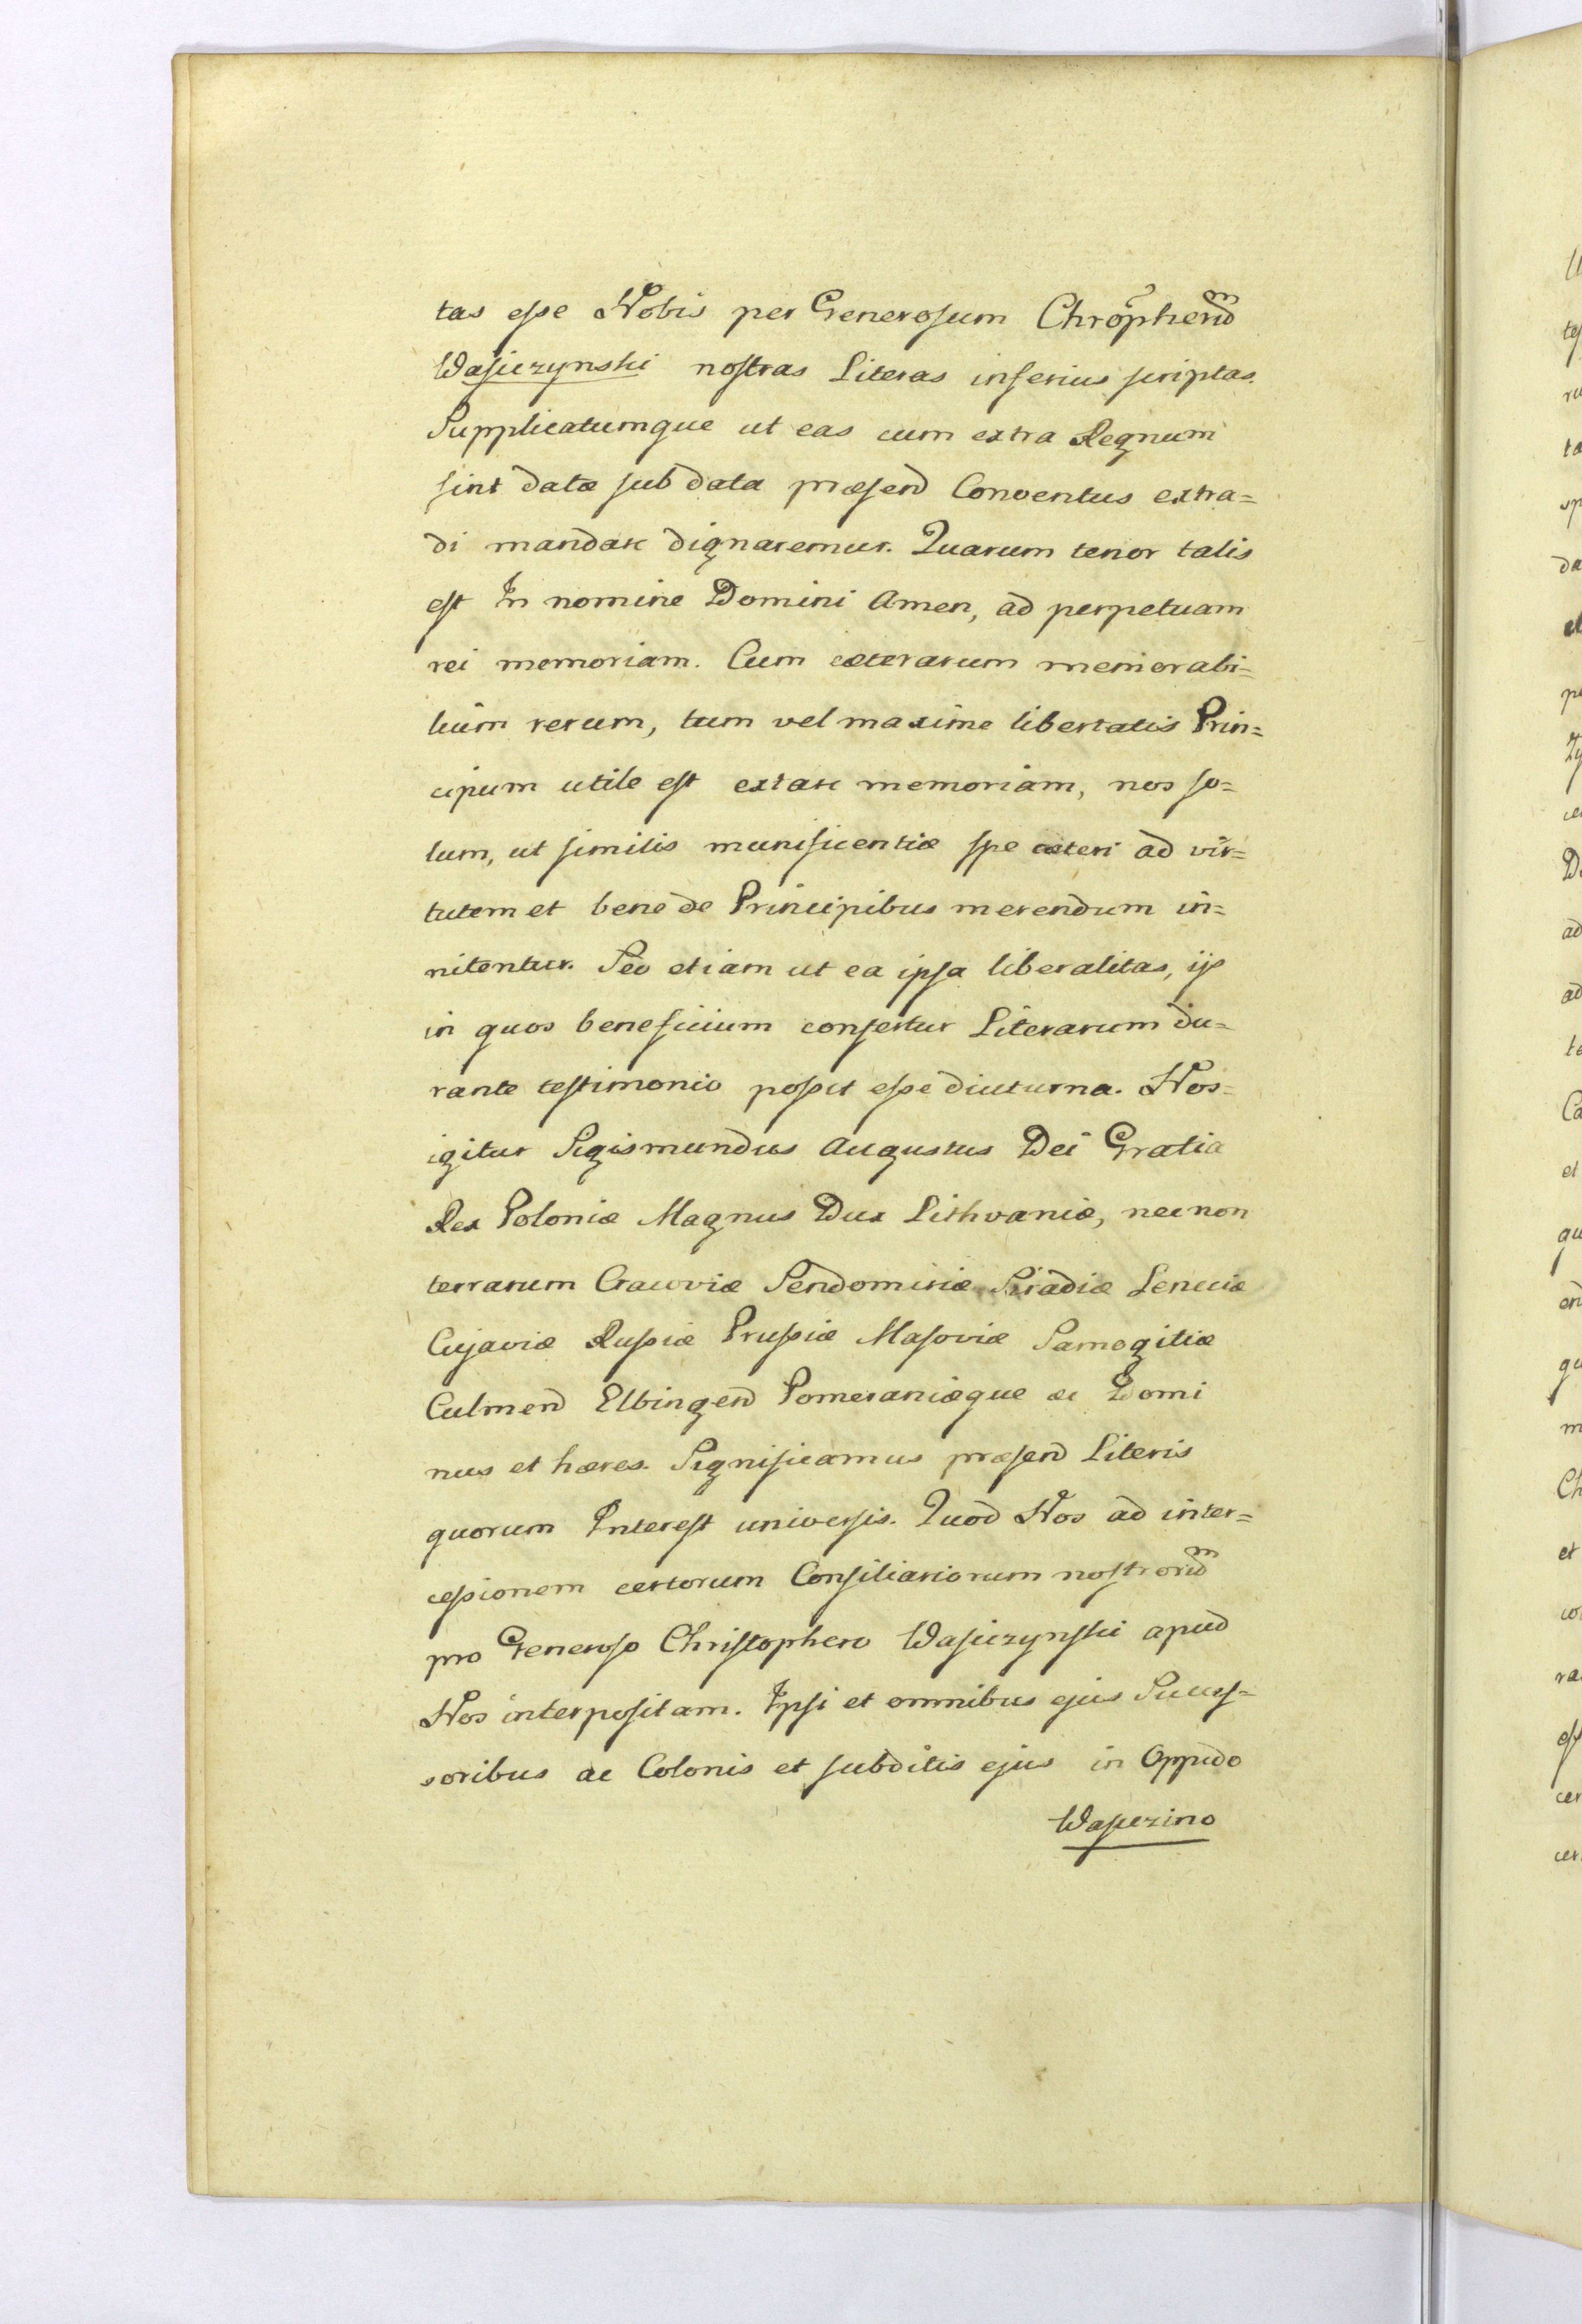 tas esse Nobis per Generosum Chrõpherũm
Wasiczynski nostras Literas inferius scriptas.
Supplicatumque ut eas cum extra Regnum
sint datæ sub data præsend Conventus extra=
di mandare dignaremur. Quarum tenor talis
est In nomine Domini Amen, ad perpetuam
rei memoriam. Cum cæterarum memorabi=
lium rerum, tum vel maxime libertatis Prin=
cipum utile est extare memoriam, nos so=
lum, ut similis munificentiæ spe cæteri ad vir=
tutem et bene de Principibus merendum in=
nitentur. Sed etiam ut ea ipsa liberalitas, ijs
in quos beneficium confertur Literarum du=
rante testimonio possit esse diuturna. Nos=
igitur Sigismundus Augustus Dei Gratia
Rex Poloniæ Magnus Dux Lithvaniæ, necnon
terrarum Cracoviæ Sendomiriæ Siradiæ Lenciciæ
Cujaviæ Russiæ Prussiæ Masoviæ Samogitiæ
Culmend Elbingend Pomeraniæque ac Domi
nus et hæres. Significamus præsend Literis
quorum Interest universis. Quod Nos ad inter=
cessionem certorum Consiliariorum nostrorũm
pro Generoso Christophero Wasiczynski apud
Nos interpositam. Ipsi et omnibus ejus Succes=
soribus ac Colonis et subditis ejus in Oppido
Wasiczino